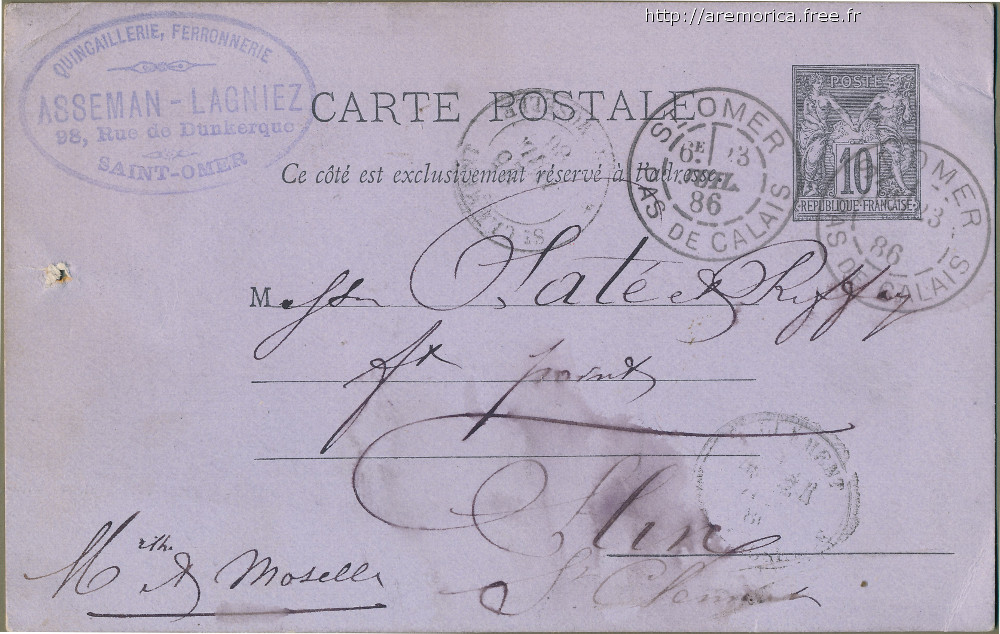 http://aremorica.free.fr
QUINCAILLERIE, FERRONNERIE
ASSEMAN - LAGNIEZ
98, Rue de Dunkerque
SAINT-OMER
CARTE POSTALE
Ce côté est exclusivement réservé à l'adresse.
POSTE
10
RÉPUBLIQUE FRANÇAISE
ST OMER
6E 23
JUIL.
86
PAS DE CALAIS
OMER
23
86
PAS DE CALAIS
Messrs
fts
Clin
St Clément
Mrthe & Moselle